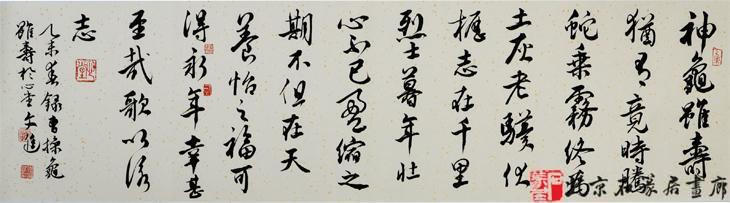 神龜雖壽
猶有竟時騰
蛇乘霧終為
土灰老驥伏
櫪志在千里
烈士暮年壯
心不已盈縮之
期不但在天
養怡之福可
得永年幸甚
至哉歌以詠
志
乙未春錄曹操龜
雖壽於心堂文進
京居畫廊